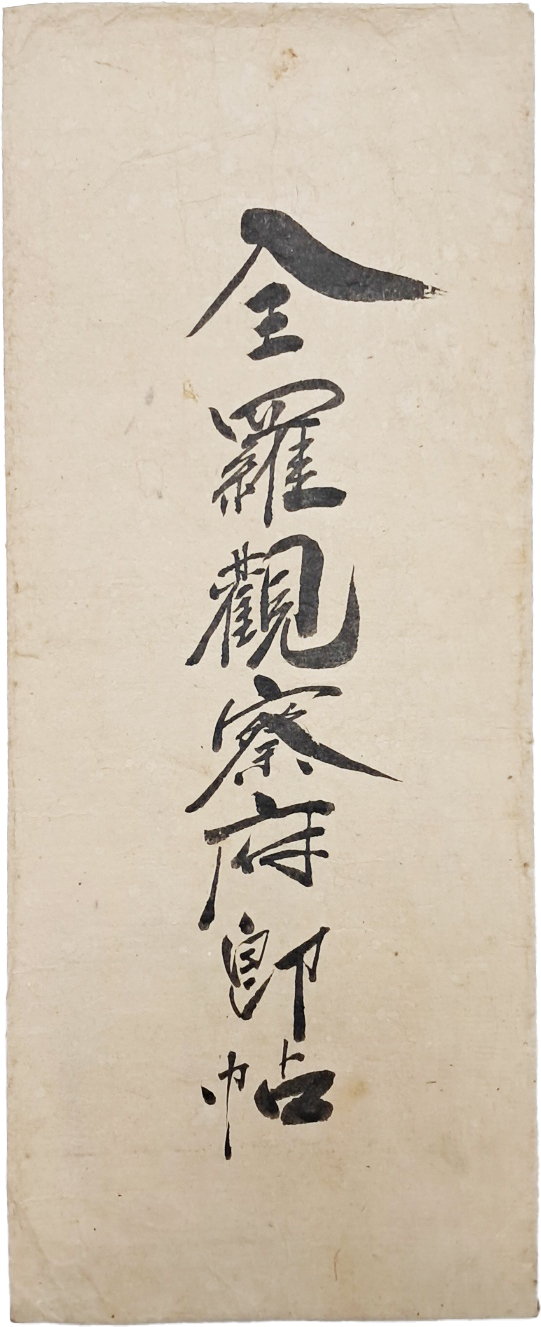 全羅觀察府郎帖